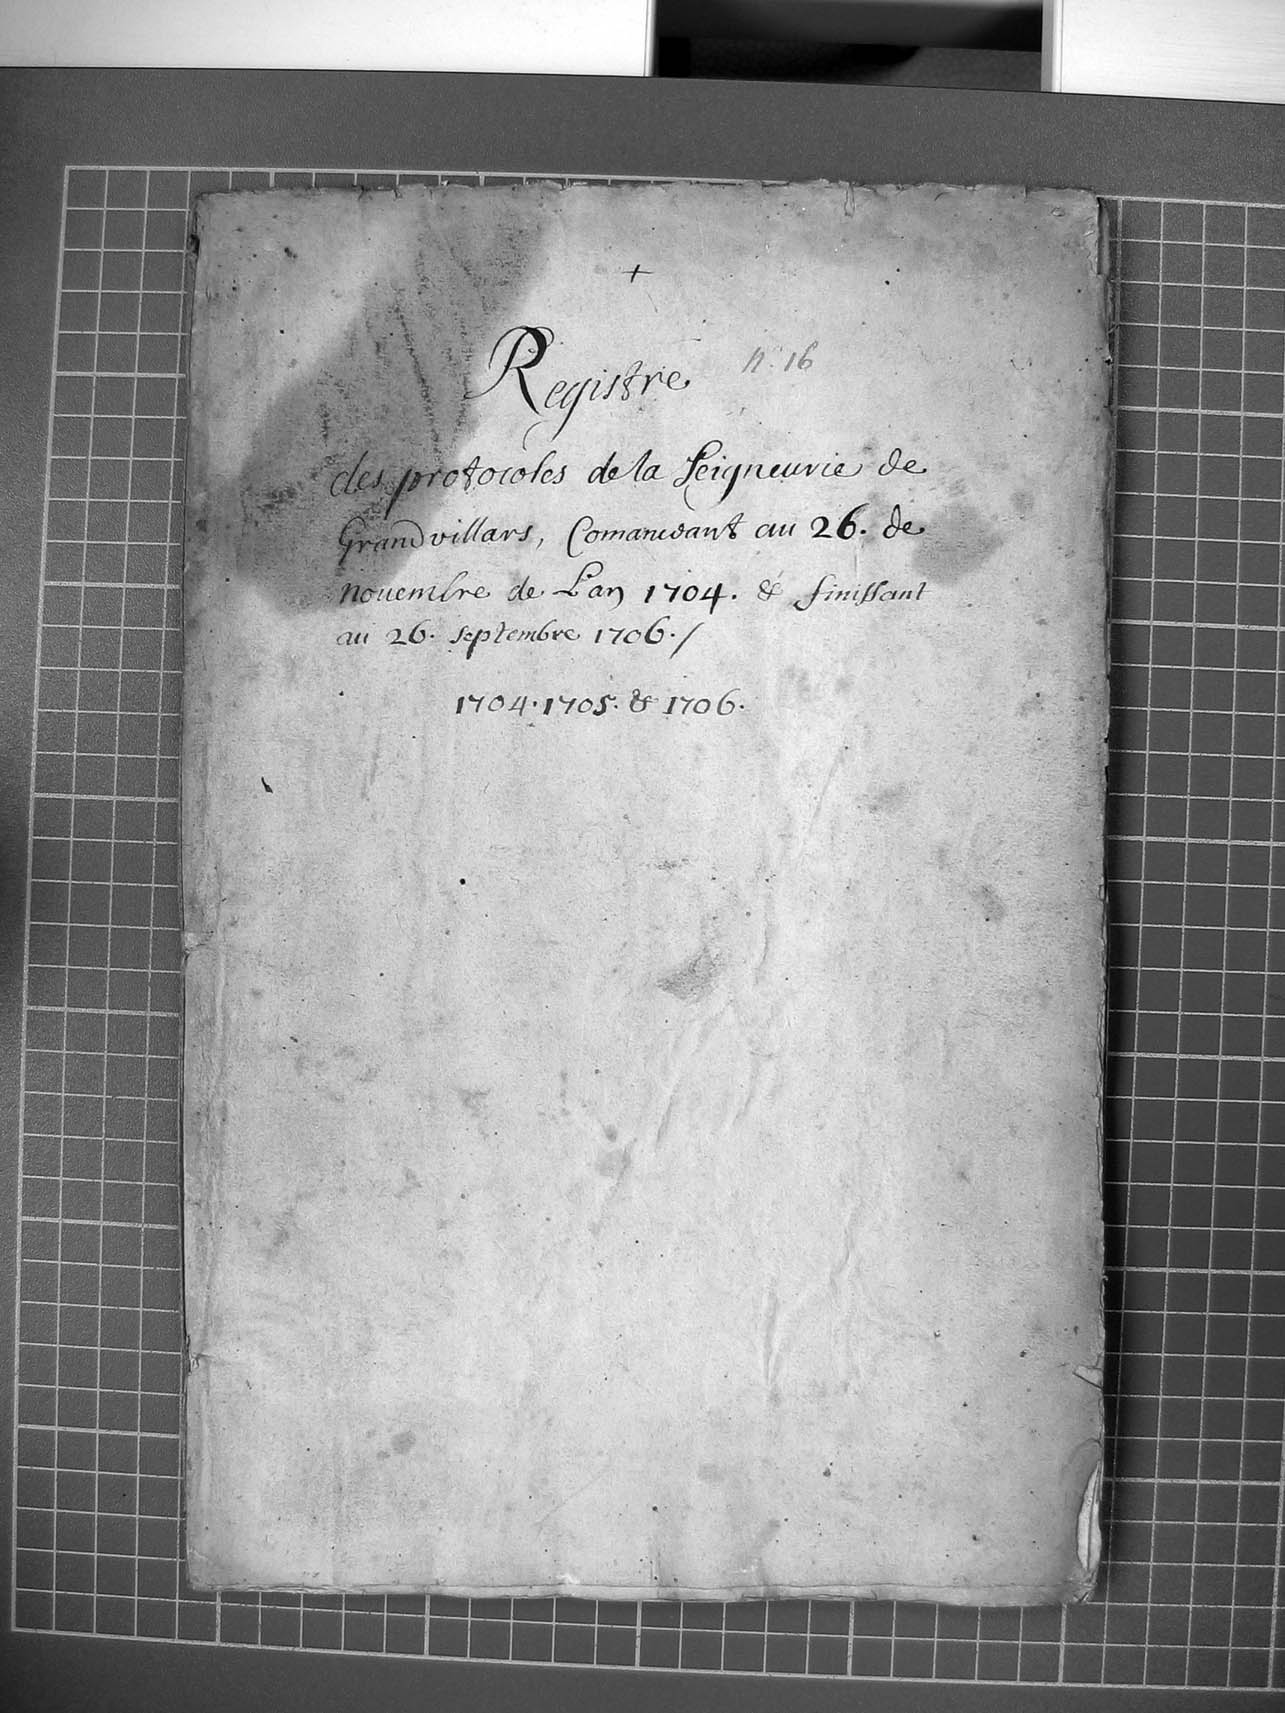 +
Registre n. 16
des protocoles de la Seigneurie de
Grandvillars, Comancant au 26. de
nouembre de L'an 1704. & finissant
au 26. septembre 1706./
1704. 1705. & 1706.